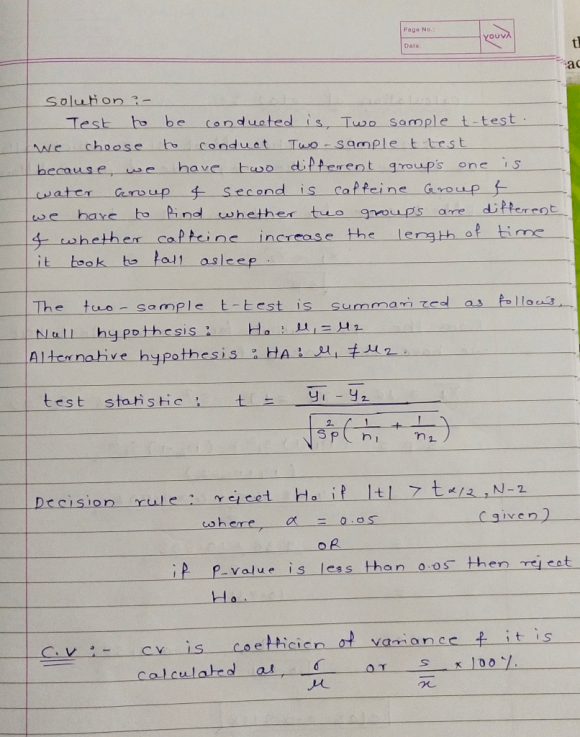 Page No.:
Date:
YOUVA
Solution :-
Test to be conducted is, Two sample t-test.
We choose to conduct Two-sample t-test
because, we have two different groups one is
water Group & second is caffeine Group &
we have to find whether two groups are different
& whether caffeine increase the length of time
it took to fall asleep.
The two-sample t-test is summarized as follows.
Null hypothesis : H₀ : μ₁ = μ₂
Alternative hypothesis : HA : μ₁ ≠ μ₂.
test statistic : t = (y̅₁ - y̅₂) / √(s²p (1/n₁ + 1/n₂))
Decision rule : reject H₀ if |t| > tα/2, N-2
where, α = 0.05 (given)
OR
if P-value is less than 0.05 then reject
H₀.
C.V :- CV is coefficien of variance & it is
calculated as, σ/μ or s/x̅ × 100%.